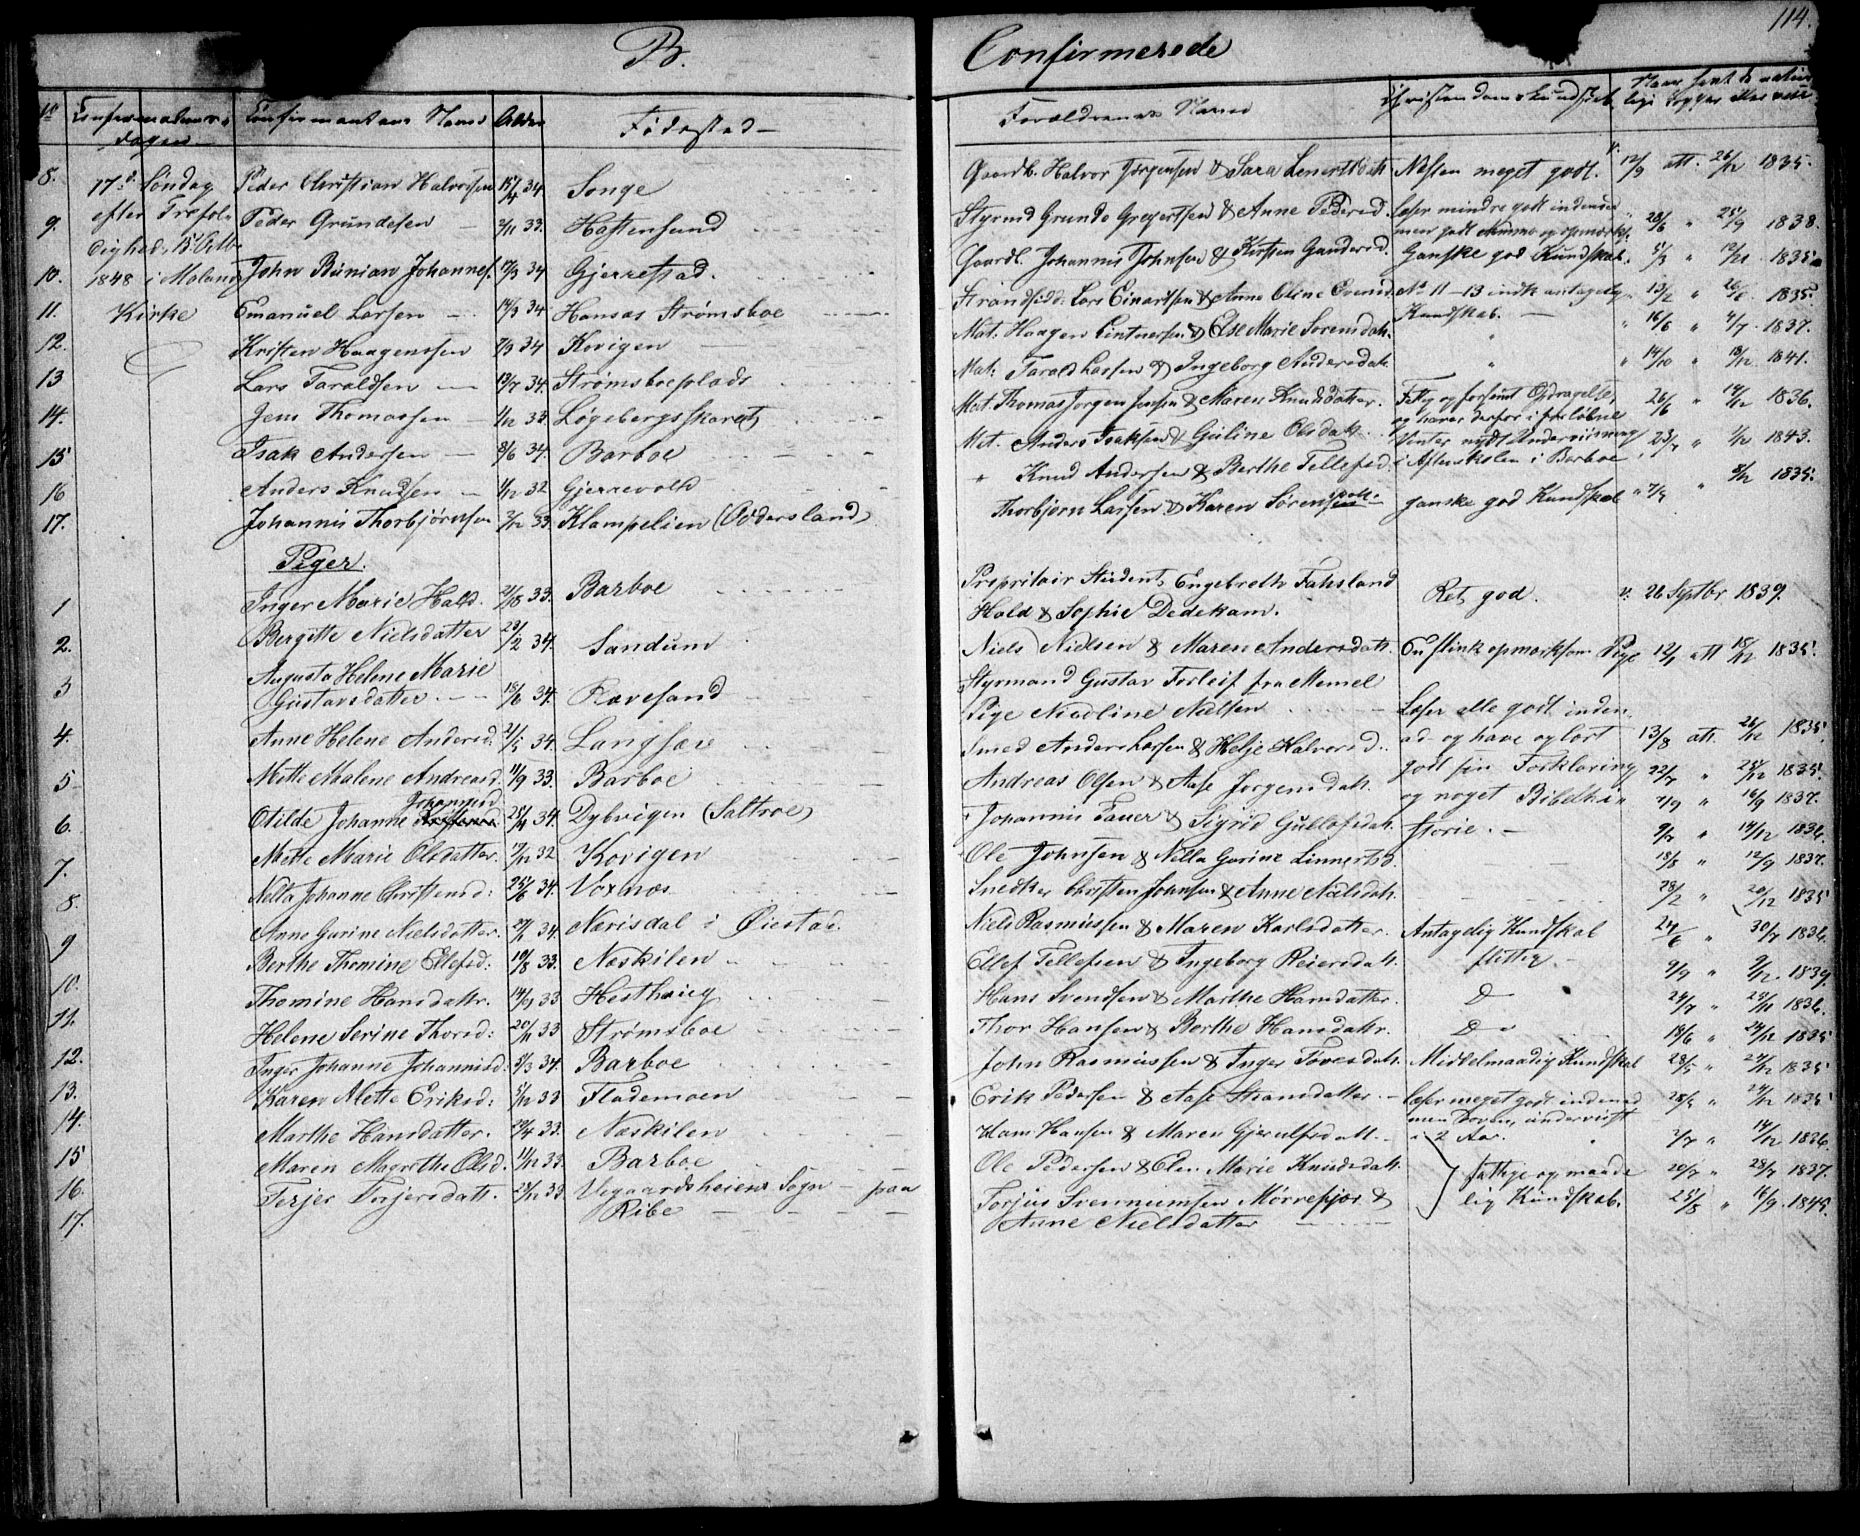 B.
Nº Confirmations- dagen Confirmantens Navne Alder Fødested
8. 17de Søndag Peder Christian Halvorsen 15/4 34 Songe
efter Trefol-
9. Peder Grundesen 2/11 33. Hastensund
dighed, 15 Octbr
10. 1848 i Moland John Bunian Johannes. 17/3 34 Gjerrestad.
11. Kirke Emanuel Larsen 14/3 34 Hansas Strømsboe
12. Kristen Haagenssen 7/3 34 Kovigen
13 Lars Taraldsen 13/7 34. Strømsboeplads
14. Jens Thomassen 1/12 33. Løgebergsskaret
15 Isak Andersen 8/6 34. Barboe
16 Anders Knudsen 1/12 32 Gjerrevold
17. Johannis Thorbjørnsen 2/12 33 Klampelien (Oddersland)
Piger.
1 Inger Marie Hald. 33. Barboe
2. Bergitte Nielsdatter 23/2 34. Sandum
Augusta Helene Marie
3 Gustavsdatter. 18/6 34. Ravesand
4. Anne Helene Andersd: 21/5 34. Langsæe
5 Mette Malene Andreasd. 11/9 33. Barboe
Johannisd
6. Otilde Johanne 25/4 34. Dybvigen (Saltroe)
7. Mette Marie Olsdatter. 17/12 32 Kovigen
8. Nella Johanne Christensd: 25/6 34. Voxnæs
9 Anne Gurine Nielsdatter. 34. Narisdal i Øiestad.
10. Berthe Thomine Ellefsd: 19/8 33. Næskilen
11. Thomine Hansdattr. 14/9 33 Hesthaug
12. Helene Serine Thorsd: 20/11 33 Strømsboe
13. Inger Johanne Johannisd: 5/3 34. Barboe
14. Karen Mette Eriksd: 5/12 33 Flademoen
15 Marthe Hansdatter. 33. Næskilen
16. Maren Magrethe Olsd. 11/12 33. Barboe
17. Terjer Torjersdatt. 24/12 33. Vegaardsheiens Sogn – paa
Ribe
114.
Confirmerede
Forældrenes Navne Christendomskundskab Naar havt de natur- lige Kopper eller vacc
Gaardb. Halvor Jørgensen & Sara Lenertsdatt. Næsten meget godt. v. 12/9 att. 26/12 1835.
Styrmd Grunde Gregertsen & Anne Pedersd. Læser mindre godt indenad 28/6 " 25/9 1838.
men godt
Gaardb. Johannis Johnsen & Kirsten Gundersd. Ganske god Kundskab. 5/9 " 12/11 1835
Strandsidd. Lars Einartsen & Anne Oline Evensd. Nº 11–13 incl. antagelig " 13/2 " 26/6 1835.
Kundskab.
Mat. Haagen Lintnersen & Else Marie Sørensdatt. " 16/6 " 4/7. 1837.
Mat. Tarald Larsen & Ingeborg Andersdatt. " " 14/10 " 18/12 1841.
Mat. Thomas Jørgen Jensen & Maren Knudsdatter. Fattig og forsømt Opdragelse, 26/6 " 14/12 1836.
og haver derfor i forløbne
Mat. Anders Isaksen & Guline Olsdatt. Vinter nydt Underviisning 23/7 " 1/12 1843.
" Knud Andersen & Berthe Tellefsd. i Aftenskolen i Barboe " 9/12 1835.
Thorbjørn Larsen & Karen Sørensdatt. ganske god Kundskab " 7/9
Propritair Student, Engebreth Faksland
Hald & Sophie Dedekam. Ret god. v. 26 Septbr 1839.
Niels Nielsen & Maren Andersdatt. En flink opmærksom Pige 12/1 att 18/12 1835.
Styrmand Gustav Forleif fra Memel
Pige Nicoline Nielsen Læser alle godt inden-
Smed Anders Larsen & Helje Halvorsd. ad og have og lært 13/8 att. 26/12 1835.
Andreas Olsen & Aase Jørgensdatt. godt sin Forklaring 22/7 " 28/12 1835.
Johannis Fauer & Sigrid Gullofsdatt. og noget Bibelhi- " 16/9 1837.
Ole Johnsen & Nella Gurine Linnertsd. storie. 9/7 " 14/12 1836.
Snedker Christen Johnsen & Anne Nielsdatt. 18/8 " 12/9 1837.
Niels Rasmussen & Maren Karlsdatter. Antagelig Kundskab 28/2 " 20/12 1835
Ellef Tellefsen & Ingeborg Reiersdatt. flittig. 24/6 " 30/7 1836.
Hans Svendsen & Marthe Hansdatter. Do 9/9 " 9/12. 1839.
Thor Hansen & Berthe Hansdattr. Do 24/7 " 1836.
John Rasmussen & Inger Tovesdatt. Middelmaadig Kundskab 18/6 " 24/12 1835
Erik Pedersen & Aase Hansdatter. Læser meget godt indenad 28/5 " 24/12 1835
men Doven, underviist
Hans Hansen & Maren Gjerulfsdatt. i 2 Aar. 7/7 " 14/12 1836.
Ole Pedersen & Elen Marie Knudsdatt. fattige og maade- 20/7 " 28/7 1837.
Torjus Svennumsen Mørrefjær & lig Kundskab. 25/8 " 16/9. 1845.
Anne Nielsdatter